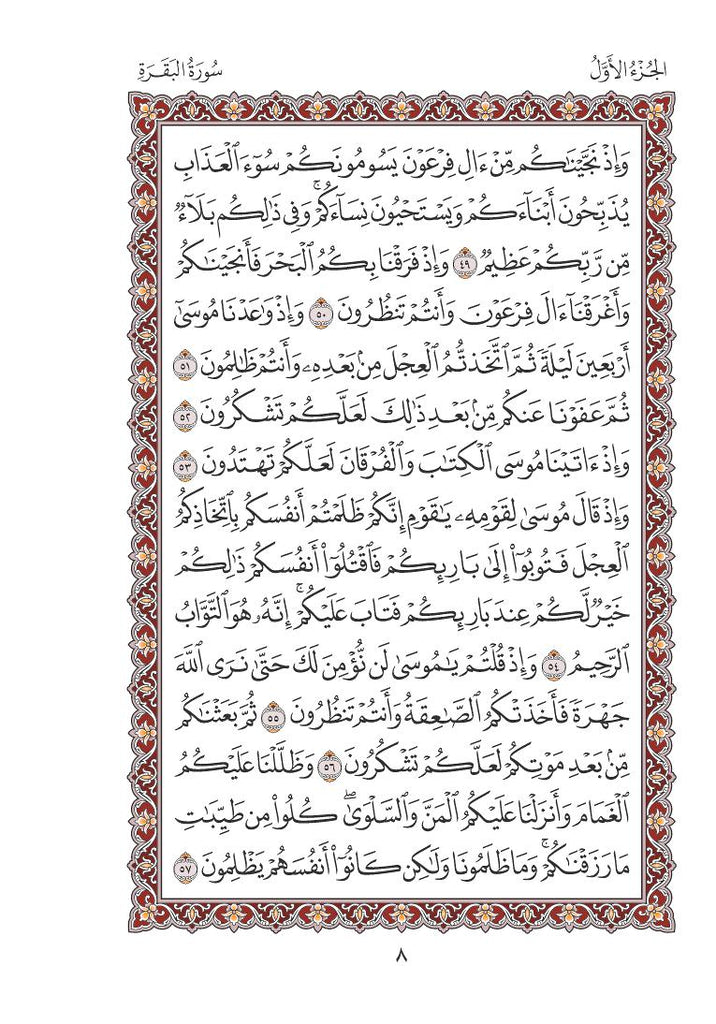 الجُزْءُ الأَوَّلُ سُورَةُ البَقَرَةِ
وَإِذْ نَجَّيْنَٰكُم مِّنْ ءَالِ فِرْعَوْنَ يَسُومُونَكُمْ سُوٓءَ ٱلْعَذَابِ
يُذَبِّحُونَ أَبْنَآءَكُمْ وَيَسْتَحْيُونَ نِسَآءَكُمْ ۚ وَفِى ذَٰلِكُم بَلَآءٌ
مِّن رَّبِّكُمْ عَظِيمٌ ٤٩ وَإِذْ فَرَقْنَا بِكُمُ ٱلْبَحْرَ فَأَنجَيْنَٰكُمْ
وَأَغْرَقْنَآ ءَالَ فِرْعَوْنَ وَأَنتُمْ تَنظُرُونَ ٥٠ وَإِذْ وَٰعَدْنَا مُوسَىٰٓ
أَرْبَعِينَ لَيْلَةً ثُمَّ ٱتَّخَذْتُمُ ٱلْعِجْلَ مِنۢ بَعْدِهِۦ وَأَنتُمْ ظَٰلِمُونَ ٥١
ثُمَّ عَفَوْنَا عَنكُم مِّنۢ بَعْدِ ذَٰلِكَ لَعَلَّكُمْ تَشْكُرُونَ ٥٢
وَإِذْ ءَاتَيْنَا مُوسَى ٱلْكِتَٰبَ وَٱلْفُرْقَانَ لَعَلَّكُمْ تَهْتَدُونَ ٥٣
وَإِذْ قَالَ مُوسَىٰ لِقَوْمِهِۦ يَٰقَوْمِ إِنَّكُمْ ظَلَمْتُمْ أَنفُسَكُم بِٱتِّخَاذِكُمُ
ٱلْعِجْلَ فَتُوبُوٓا۟ إِلَىٰ بَارِئِكُمْ فَٱقْتُلُوٓا۟ أَنفُسَكُمْ ذَٰلِكُمْ
خَيْرٌ لَّكُمْ عِندَ بَارِئِكُمْ فَتَابَ عَلَيْكُمْ ۚ إِنَّهُۥ هُوَ ٱلتَّوَّابُ
ٱلرَّحِيمُ ٥٤ وَإِذْ قُلْتُمْ يَٰمُوسَىٰ لَن نُّؤْمِنَ لَكَ حَتَّىٰ نَرَى ٱللَّهَ
جَهْرَةً فَأَخَذَتْكُمُ ٱلصَّٰعِقَةُ وَأَنتُمْ تَنظُرُونَ ٥٥ ثُمَّ بَعَثْنَٰكُم
مِّنۢ بَعْدِ مَوْتِكُمْ لَعَلَّكُمْ تَشْكُرُونَ ٥٦ وَظَلَّلْنَا عَلَيْكُمُ
ٱلْغَمَامَ وَأَنزَلْنَا عَلَيْكُمُ ٱلْمَنَّ وَٱلسَّلْوَىٰ ۖ كُلُوا۟ مِن طَيِّبَٰتِ
مَا رَزَقْنَٰكُمْ ۚ وَمَا ظَلَمُونَا وَلَٰكِن كَانُوٓا۟ أَنفُسَهُمْ يَظْلِمُونَ ٥٧
٨